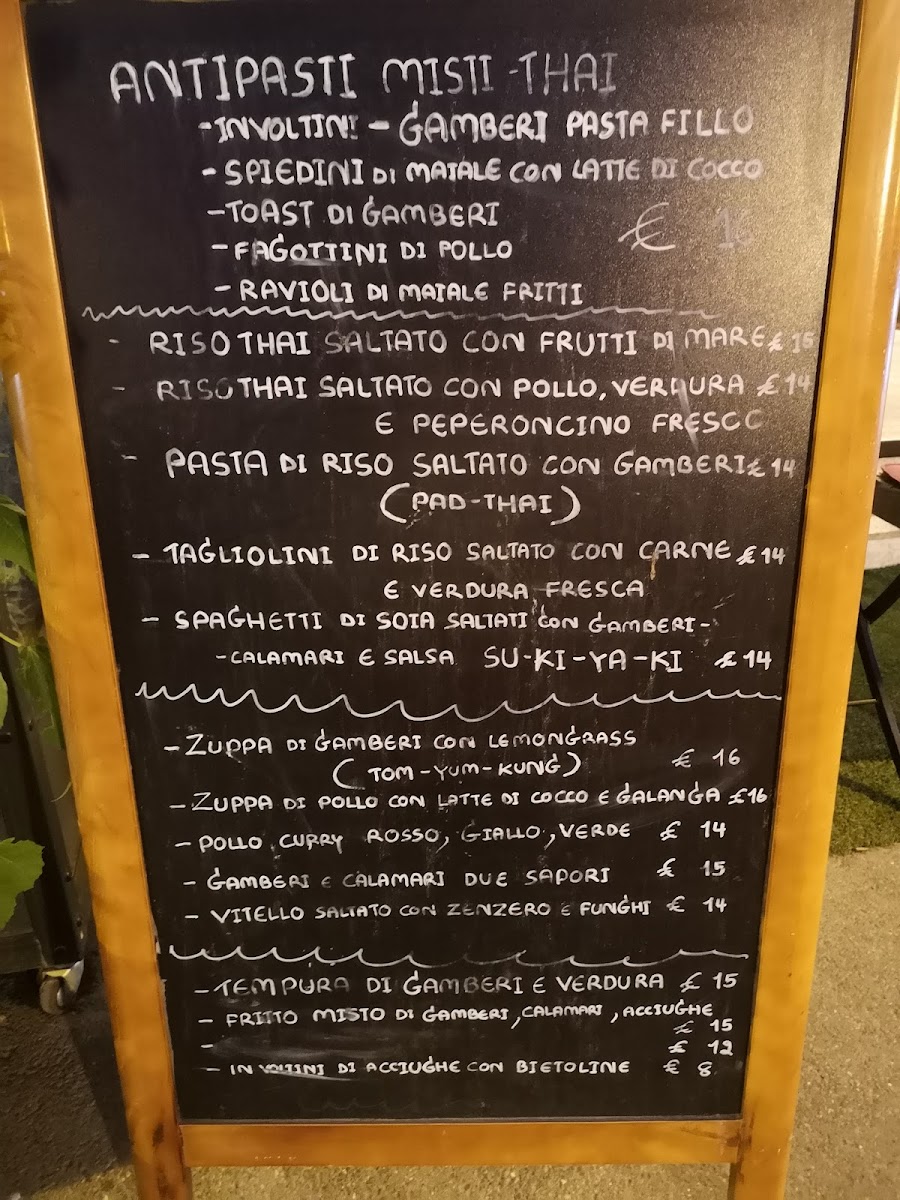 ANTIPASTI MISTI - THAI
- INVOLTINI - GAMBERI PASTA FILLO
- SPIEDINI DI MAIALE CON LATTE DI COCCO
- TOAST DI GAMBERI
€ 16
- FAGOTTINI DI POLLO
- RAVIOLI DI MAIALE FRITTI
- RISO THAI SALTATO CON FRUTTI DI MARE € 15
- RISO THAI SALTATO CON POLLO, VERDURA € 14
E PEPERONCINO FRESCO
- PASTA DI RISO SALTATO CON GAMBERI € 14
(PAD-THAI)
- TAGLIOLINI DI RISO SALTATO CON CARNE € 14
E VERDURA FRESCA
- SPAGHETTI DI SOIA SALTATI CON GAMBERI -
- CALAMARI E SALSA SU-KI-YA-KI € 14
- ZUPPA DI GAMBERI CON LEMONGRASS
(TOM-YUM-KUNG) € 16
- ZUPPA DI POLLO CON LATTE DI COCCO E GALANGA €16
- POLLO CURRY ROSSO, GIALLO, VERDE € 14
- GAMBERI E CALAMARI DUE SAPORI € 15
- VITELLO SALTATO CON ZENZERO E FUNGHI € 14
- TEMPURA DI GAMBERI E VERDURA € 15
- FRITTO MISTO DI GAMBERI, CALAMARI, ACCIUGHE
€ 15
- € 12
- INVOLTINI DI ACCIUGHE CON BIETOLINE € 8